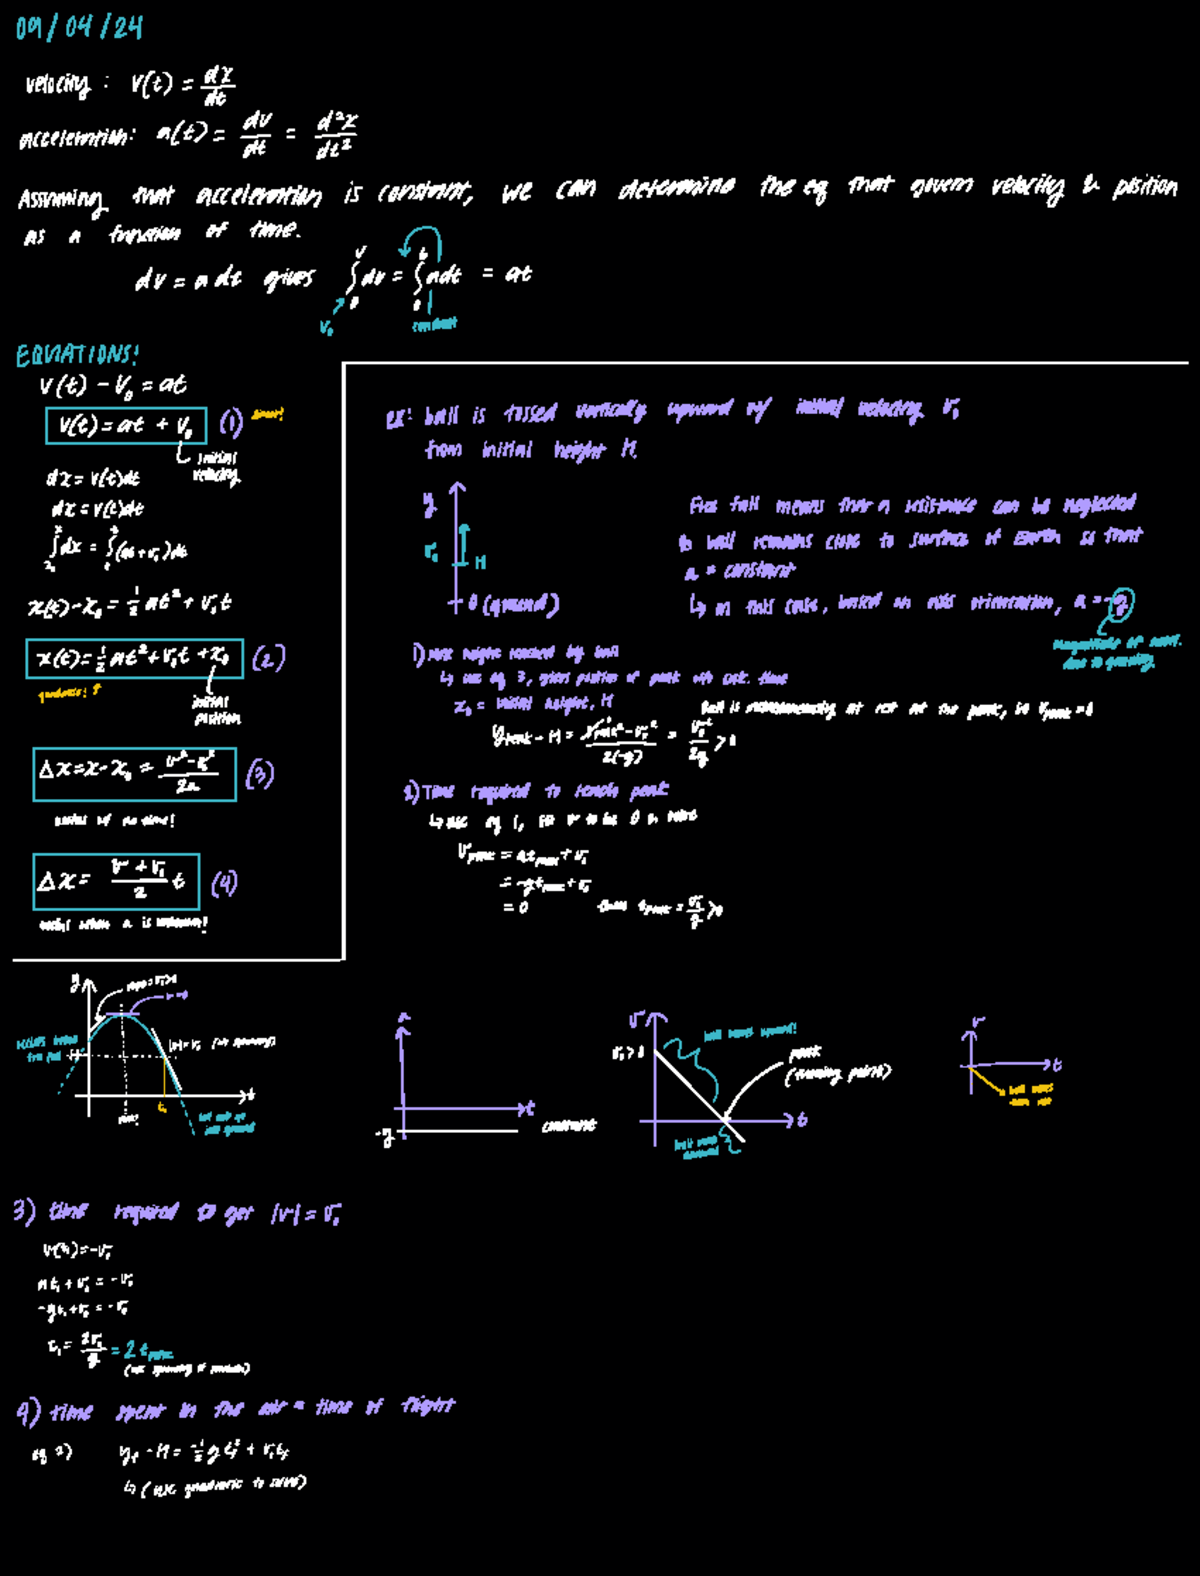 09/04/24
velocity: v(t) = dx/dt
acceleration: a(t) = dv/dt = d²x/dt²
Assuming that acceleration is constant, we can determine the eq that govern velocity & position
as a function of time.
dv = a dt gives ∫₀ᵛ dv = ∫₀ᵗ a dt = at
v₀
constant
EQUATIONS!
v(t) - v₀ = at
v(t) = at + v₀ (1) linear!
initial
velocity
dx = v(t)dt
dx = v(t)dt
∫dx = ∫(at + v₀)dt
x(t) - x₀ = 1/2 at² + v₀t
x(t) = 1/2 at² + v₀t + x₀ (2)
quadratic!
initial
position
Δx = x - x₀ = (v² - v₀²)/2a (3)
useful if no time!
Δx = (v + v₀)/2 t (4)
useful when a is unknown!
ex: ball is tossed vertically upward w/ initial velocity v₀
from initial height H.
y
v₀
H
0 (ground)
Free fall means that a resistance can be neglected
& ball remains close to surface of Earth so that
a = constant
↳ in this case, based on axis orientation, a = -g
magnitude of accel.
due to gravity.
1) Max height reached by ball
↳ use eq 3, gives position of peak w/o calc. time
x₀ = initial height, H
Ball is instantaneously at rest at the peak, so v_peak = 0
y_peak - H = (v_peak² - v₀²)/2(-g) = v₀²/2g > 0
2) Time required to reach peak
↳ use eq 1, set v to be 0 &
v_peak = at_peak + v₀
= -gt_peak + v₀
= 0 then t_peak = v₀/g > 0
y
slope = v₀ > 0
v = 0
H
t₁
t
a
t
-g
constant
v
v₀ > 0
ball moves upward!
peak
(turning point)
t
ball moves
downward
v
t
3) time required to get |v| = v₀
v(t₁) = -v₀
at₁ + v₀ = -v₀
-gt₁ + v₀ = -v₀
t₁ = 2v₀/g = 2 t_peak
(use symmetry of parabola)
4) time spent in the air = time of flight
eq 2) y_f - H = -1/2 g t_f² + v₀t_f
↳ (use quadratic to solve)